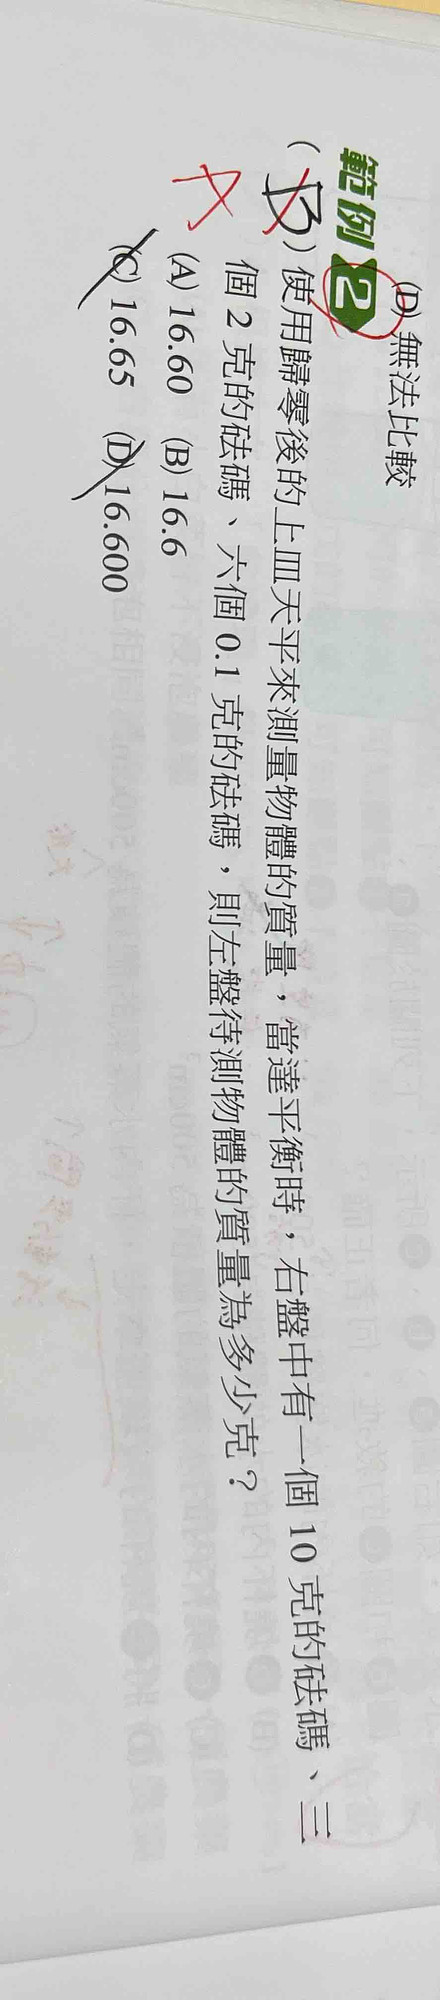 (D) 無法比較
範例 2
( B ) 使用歸零後的上皿天平來測量物體的質量，當達平衡時，右盤中有一個 10 克的砝碼、三
A 個 2 克的砝碼、六個 0.1 克的砝碼，則左盤待測物體的質量為多少克？
(A) 16.60 (B) 16.6
(C) 16.65 (D) 16.600